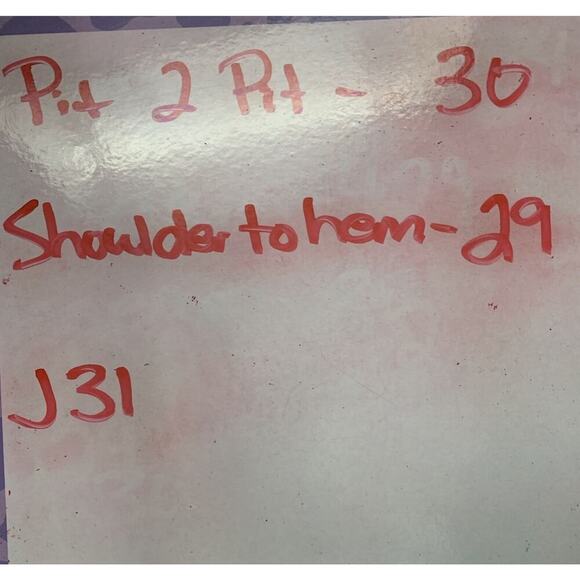 Pit 2 Pit - 30
Shoulder to hem - 29
J31